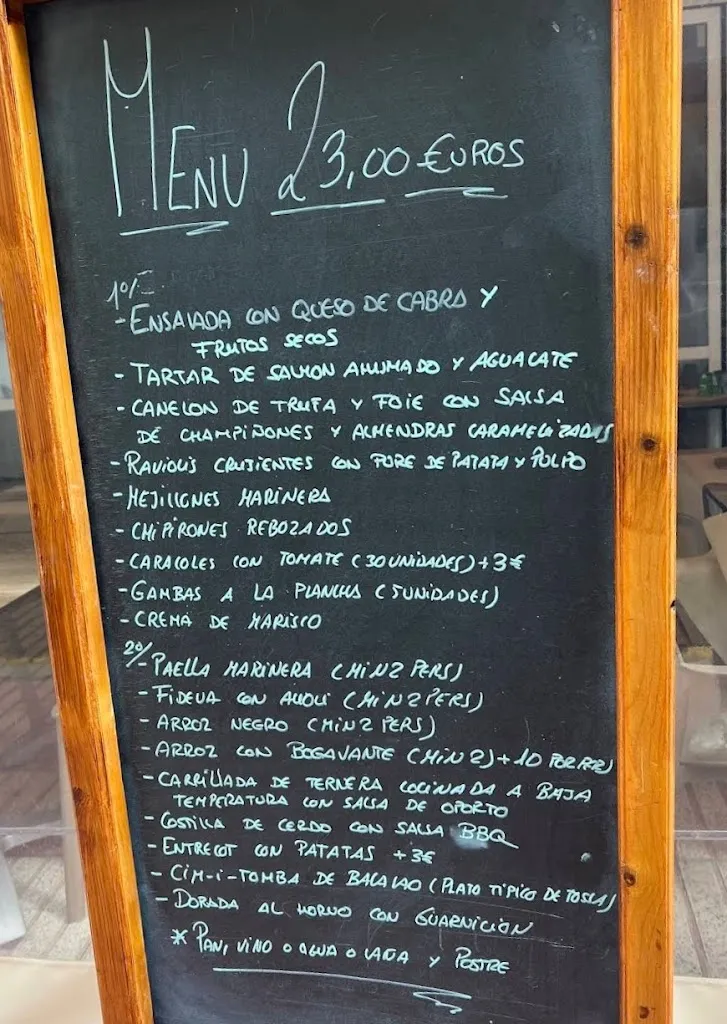 MENU 23,00 €UROS
1º/
- ENSALADA CON QUESO DE CABRA Y
FRUTOS SECOS
- TARTAR DE SALMON AHUMADO Y AGUACATE
- CANELON DE TRUFA Y FOIE CON SALSA
DE CHAMPIÑONES Y ALMENDRAS CARAMELIZADAS
- RAVIOLIS CRUJIENTES CON PURE DE PATATA Y PULPO
- MEJILLONES MARINERA
- CHIPIRONES REBOZADOS
- CARACOLES CON TOMATE (30 UNIDADES) + 3€
- GAMBAS A LA PLANCHA (5 UNIDADES)
- CREMA DE MARISCO
2º/
- PAELLA MARINERA (MIN 2 PERS)
- FIDEUA CON ALIOLI (MIN 2 PERS)
- ARROZ NEGRO (MIN 2 PERS)
- ARROZ CON BOGAVANTE (MIN 2) + 10 POR
- CARRILLADA DE TERNERA COCINADA A BAJA
TEMPERATURA CON SALSA DE OPORTO
- COSTILLA DE CERDO CON SALSA BBQ
- ENTRECOT CON PATATAS + 3€
- CIM-I-TOMBA DE BACALAO (PLATO TIPICO DE TOSSA)
- DORADA AL HORNO CON GUARNICION
* PAN, VINO O AGUA O CAÑA Y POSTRE